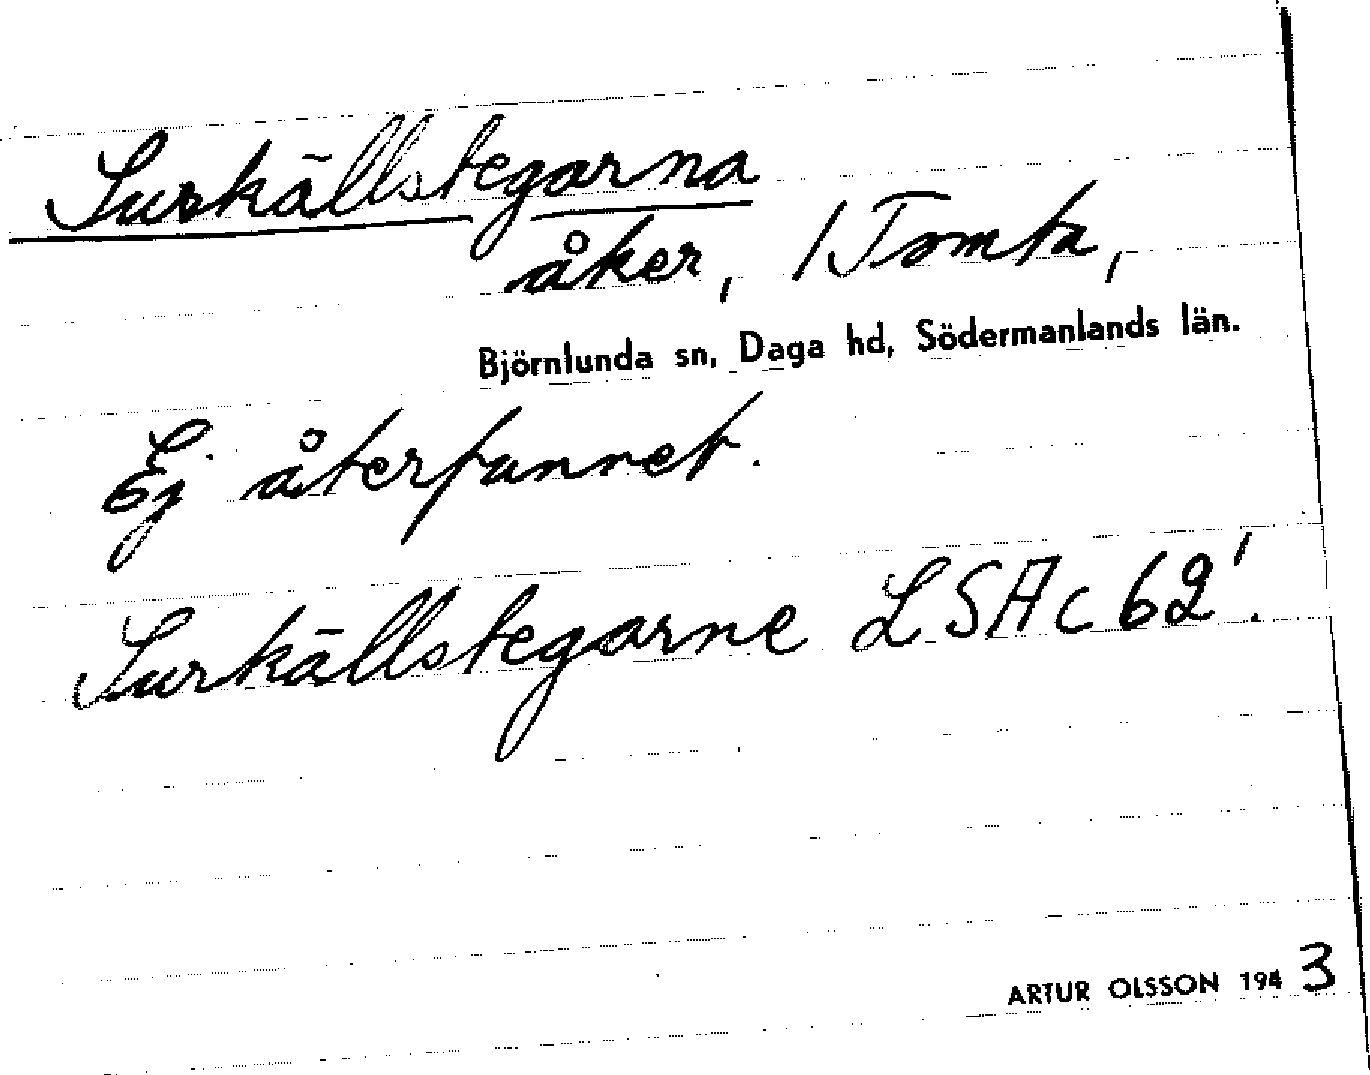 Surkällstegarna
åker, / Tomta,
Björnlunda sn, Daga hd, Södermanlands län.
Ej återfunnet.
Surkällstegarne LSA c 62'.
ARTUR OLSSON 1943